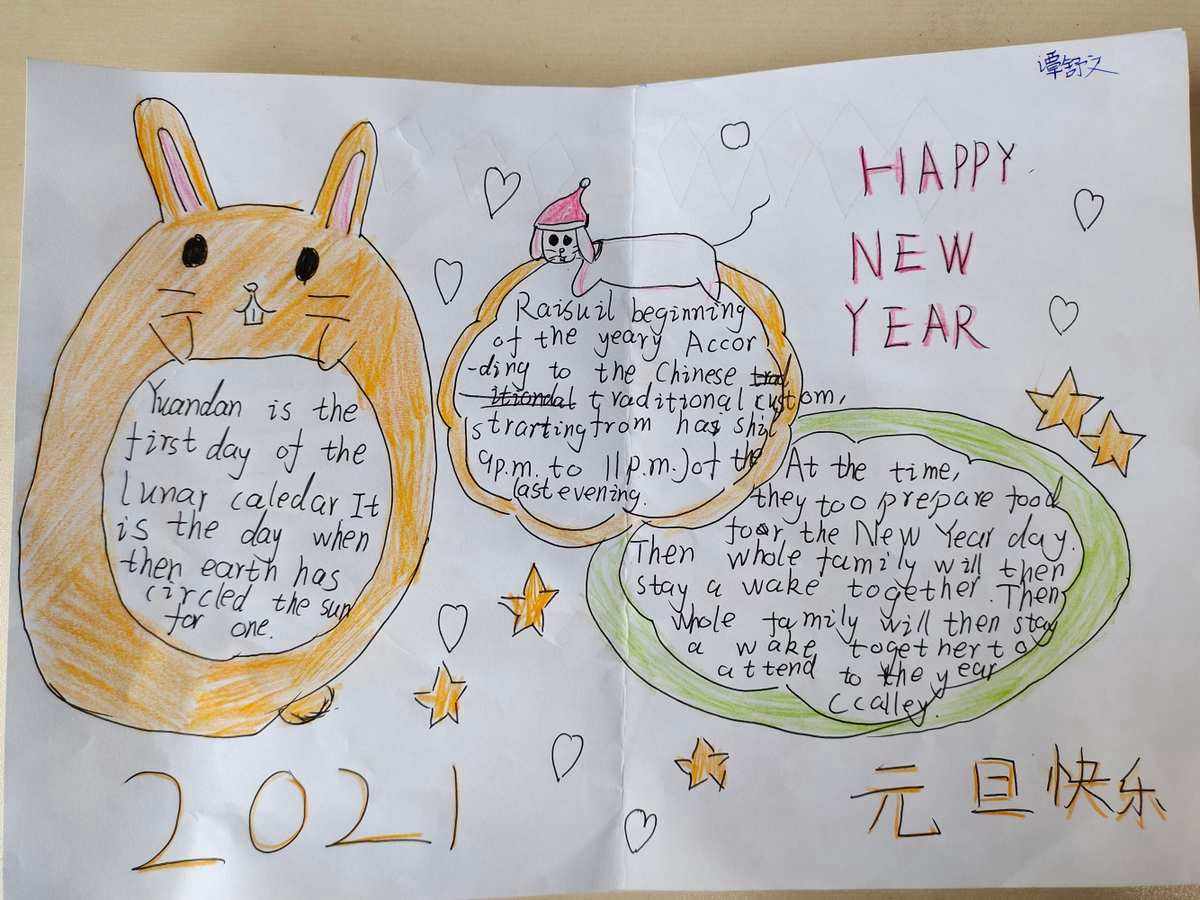 谭舒文
HAPPY
NEW
YEAR
Yuandan is the
first day of the
lunar caledar It
is the day when
then earth has
circled the sun
for one.
Raisuil beginning
of the yeary Accor
-ding to the Chinese
traditional custom,
strarting from has shil
9p.m. to 11p.m.) of the
last evening.
At the time,
they too prepare food
foor the New Year day.
Then whole family will then
stay a wake together. Then
whole family will then stay
a wake together to
attend to the year
Ccalley.
2021
元旦快乐